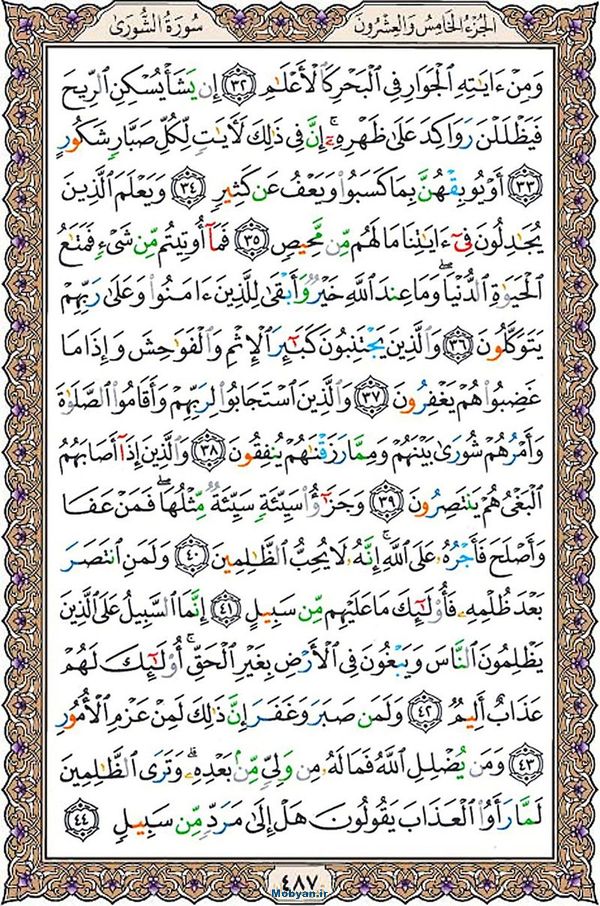 الجزء الخامس والعشرون
سورة الشورى
وَمِنْ ءَايَـٰتِهِ الْجَوَارِ فِي الْبَحْرِ كَالْأَعْلَـٰمِ ﴿٣٢﴾ إِن يَشَأْ يُسْكِنِ الرِّيحَ
فَيَظْلَلْنَ رَوَاكِدَ عَلَىٰ ظَهْرِهِۦٓ ۚ إِنَّ فِي ذَٰلِكَ لَأَيَـٰتٍ لِّكُلِّ صَبَّارٍ شَكُورٍ
﴿٣٣﴾ أَوْ يُوبِقْهُنَّ بِمَا كَسَبُوا وَيَعْفُ عَن كَثِيرٍ ﴿٣٤﴾ وَيَعْلَمَ الَّذِينَ
يُجَـٰدِلُونَ فِيٓ ءَايَـٰتِنَا مَا لَهُم مِّن مَّحِيصٍ ﴿٣٥﴾ فَمَآ أُوتِيتُم مِّن شَيْءٍ فَمَتَـٰعُ
الْحَيَوٰةِ الدُّنْيَا ۖ وَمَا عِندَ اللَّهِ خَيْرٌ وَأَبْقَىٰ لِلَّذِينَ ءَامَنُوا وَعَلَىٰ رَبِّهِمْ
يَتَوَكَّلُونَ ﴿٣٦﴾ وَالَّذِينَ يَجْتَنِبُونَ كَبَـٰٓئِرَ الْإِثْمِ وَالْفَوَاحِشَ وَإِذَا مَا
غَضِبُوا هُمْ يَغْفِرُونَ ﴿٣٧﴾ وَالَّذِينَ اسْتَجَابُوا لِرَبِّهِمْ وَأَقَامُوا الصَّلَوٰةَ
وَأَمْرُهُمْ شُورَىٰ بَيْنَهُمْ وَمِمَّا رَزَقْنَـٰهُمْ يُنفِقُونَ ﴿٣٨﴾ وَالَّذِينَ إِذَآ أَصَابَهُمُ
الْبَغْيُ هُمْ يَنتَصِرُونَ ﴿٣٩﴾ وَجَزَٰٓؤُا سَيِّئَةٍ سَيِّئَةٌ مِّثْلُهَا ۖ فَمَنْ عَفَا
وَأَصْلَحَ فَأَجْرُهُۥ عَلَى اللَّهِ ۚ إِنَّهُۥ لَا يُحِبُّ الظَّـٰلِمِينَ ﴿٤٠﴾ وَلَمَنِ انتَصَرَ
بَعْدَ ظُلْمِهِۦ فَأُولَـٰٓئِكَ مَا عَلَيْهِم مِّن سَبِيلٍ ﴿٤١﴾ إِنَّمَا السَّبِيلُ عَلَى الَّذِينَ
يَظْلِمُونَ النَّاسَ وَيَبْغُونَ فِي الْأَرْضِ بِغَيْرِ الْحَقِّ ۚ أُولَـٰٓئِكَ لَهُمْ
عَذَابٌ أَلِيمٌ ﴿٤٢﴾ وَلَمَن صَبَرَ وَغَفَرَ إِنَّ ذَٰلِكَ لَمِنْ عَزْمِ الْأُمُورِ
﴿٤٣﴾ وَمَن يُضْلِلِ اللَّهُ فَمَا لَهُۥ مِن وَلِيٍّ مِّنۢ بَعْدِهِۦ ۗ وَتَرَى الظَّـٰلِمِينَ
لَمَّا رَأَوُا الْعَذَابَ يَقُولُونَ هَلْ إِلَىٰ مَرَدٍّ مِّن سَبِيلٍ ﴿٤٤﴾
٤٨٧
Mobyan.ir